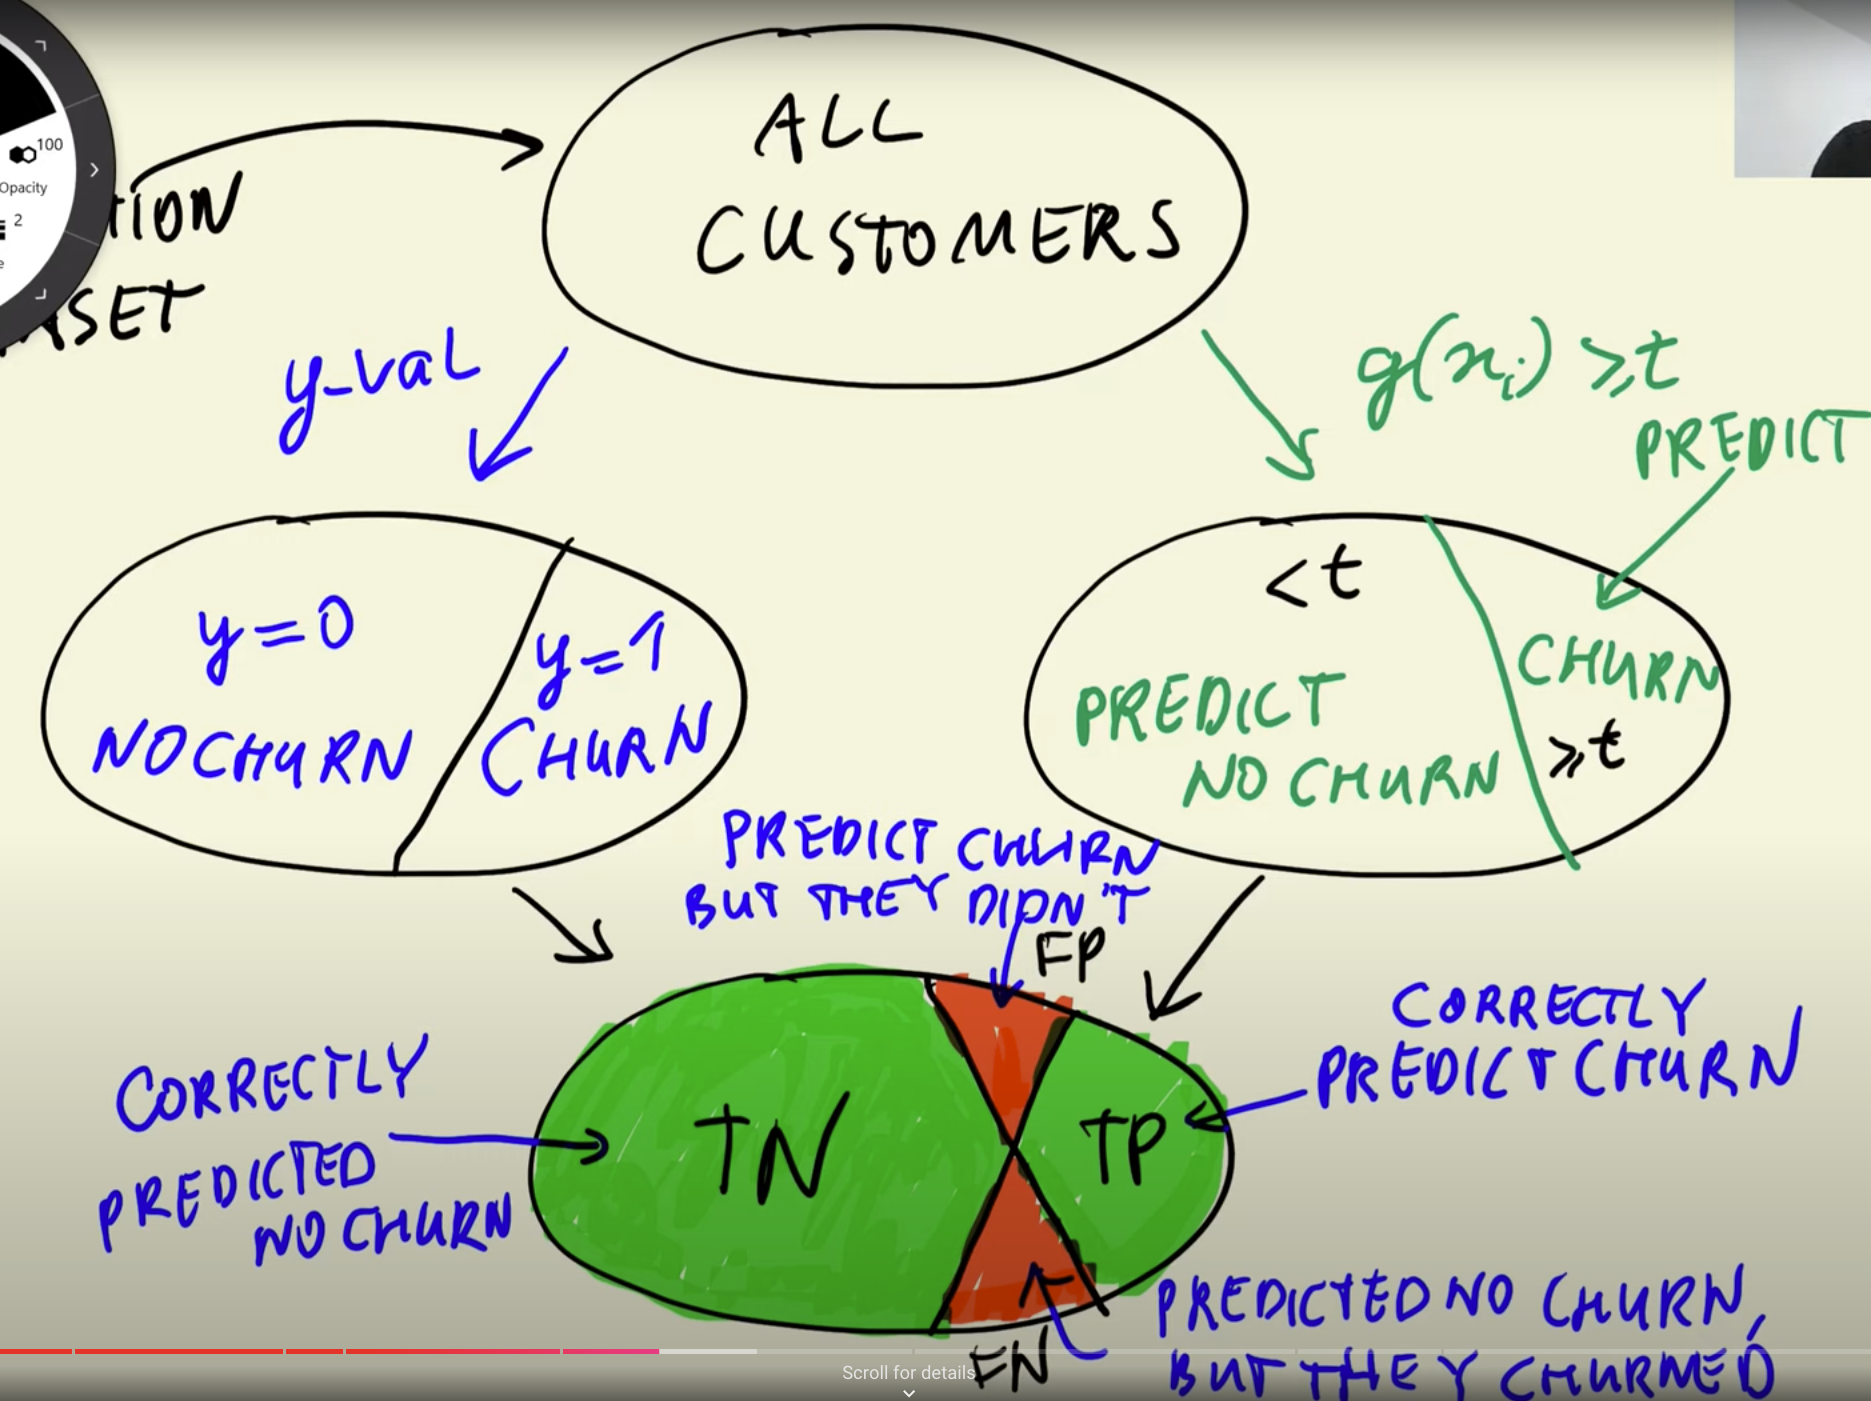 ALL
CUSTOMERS
100
Opacity
2
TION
SET
y-val
g(xi) ⩾t
PREDICT
y=0
NO CHURN
y=1
CHURN
<t
PREDICT
NO CHURN
CHURN
⩾t
PREDICT CHURN
BUT THEY DIDN'T
FP
CORRECTLY
PREDICTED
NO CHURN
TN
TP
CORRECTLY
PREDICT CHURN
FN
PREDICTED NO CHURN,
BUT THEY CHURNED
Scroll for details